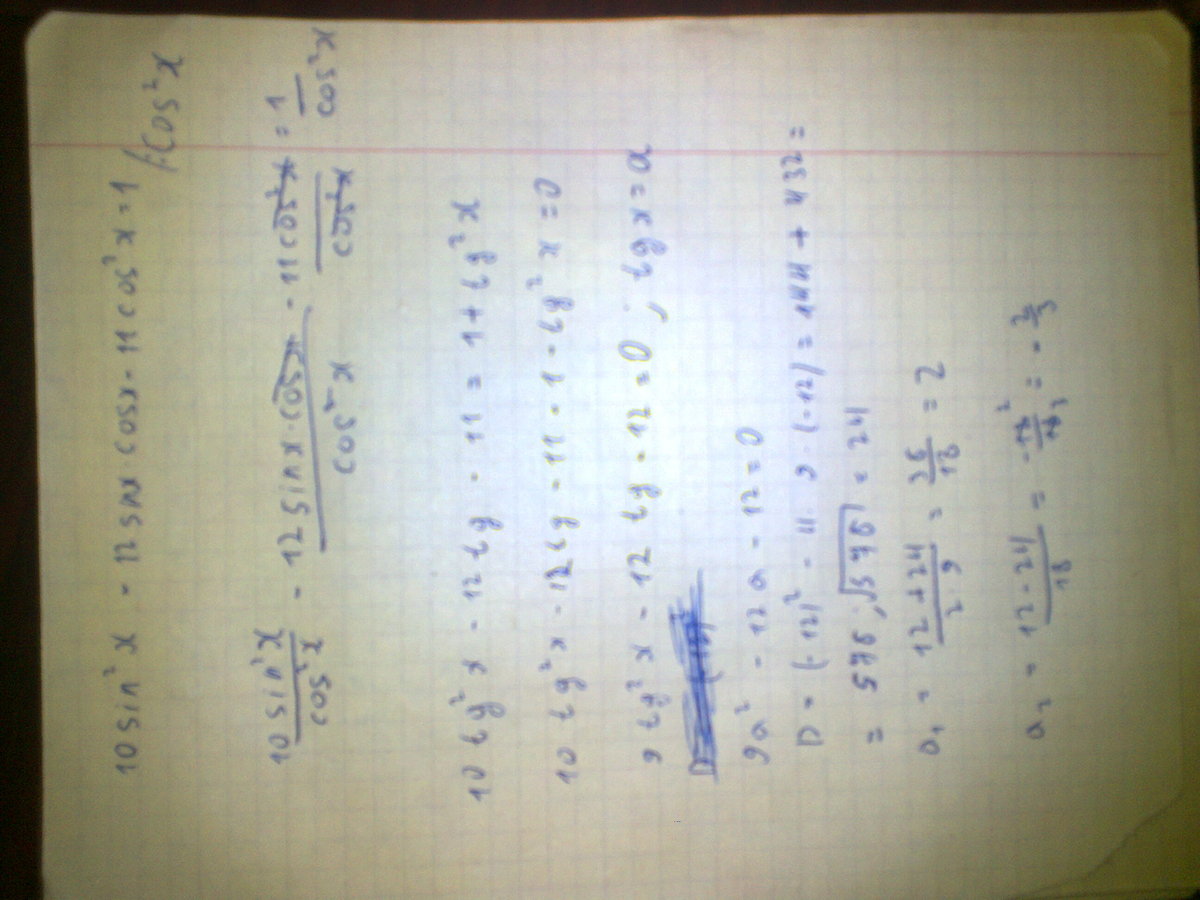 10 sin² x - 12 sinx · cosx - 11 cos² x = 1 /: cos² x
10 sin² x / cos² x - 12 sinx · cosx / cos² x - 11 cos² x / cos² x = 1 / cos² x
10 tg² x - 12 tg - 11 = 1 + tg² x
10 tg² x - 12 tg - 11 - 1 - tg² x = 0
9 tg² x - 12 tg - 12 = 0 ; tg x = a
9a² - 12a - 12 = 0
D = (-12)² - 4 · 9 · (-12) = 144 + 432 =
= 576 ; √576 = 24
a₁ = 12 + 24 / 2 · 9 = 36 / 18 = 2
a₂ = 12 - 24 / 18 = - 12 / 18 = - 2 / 3